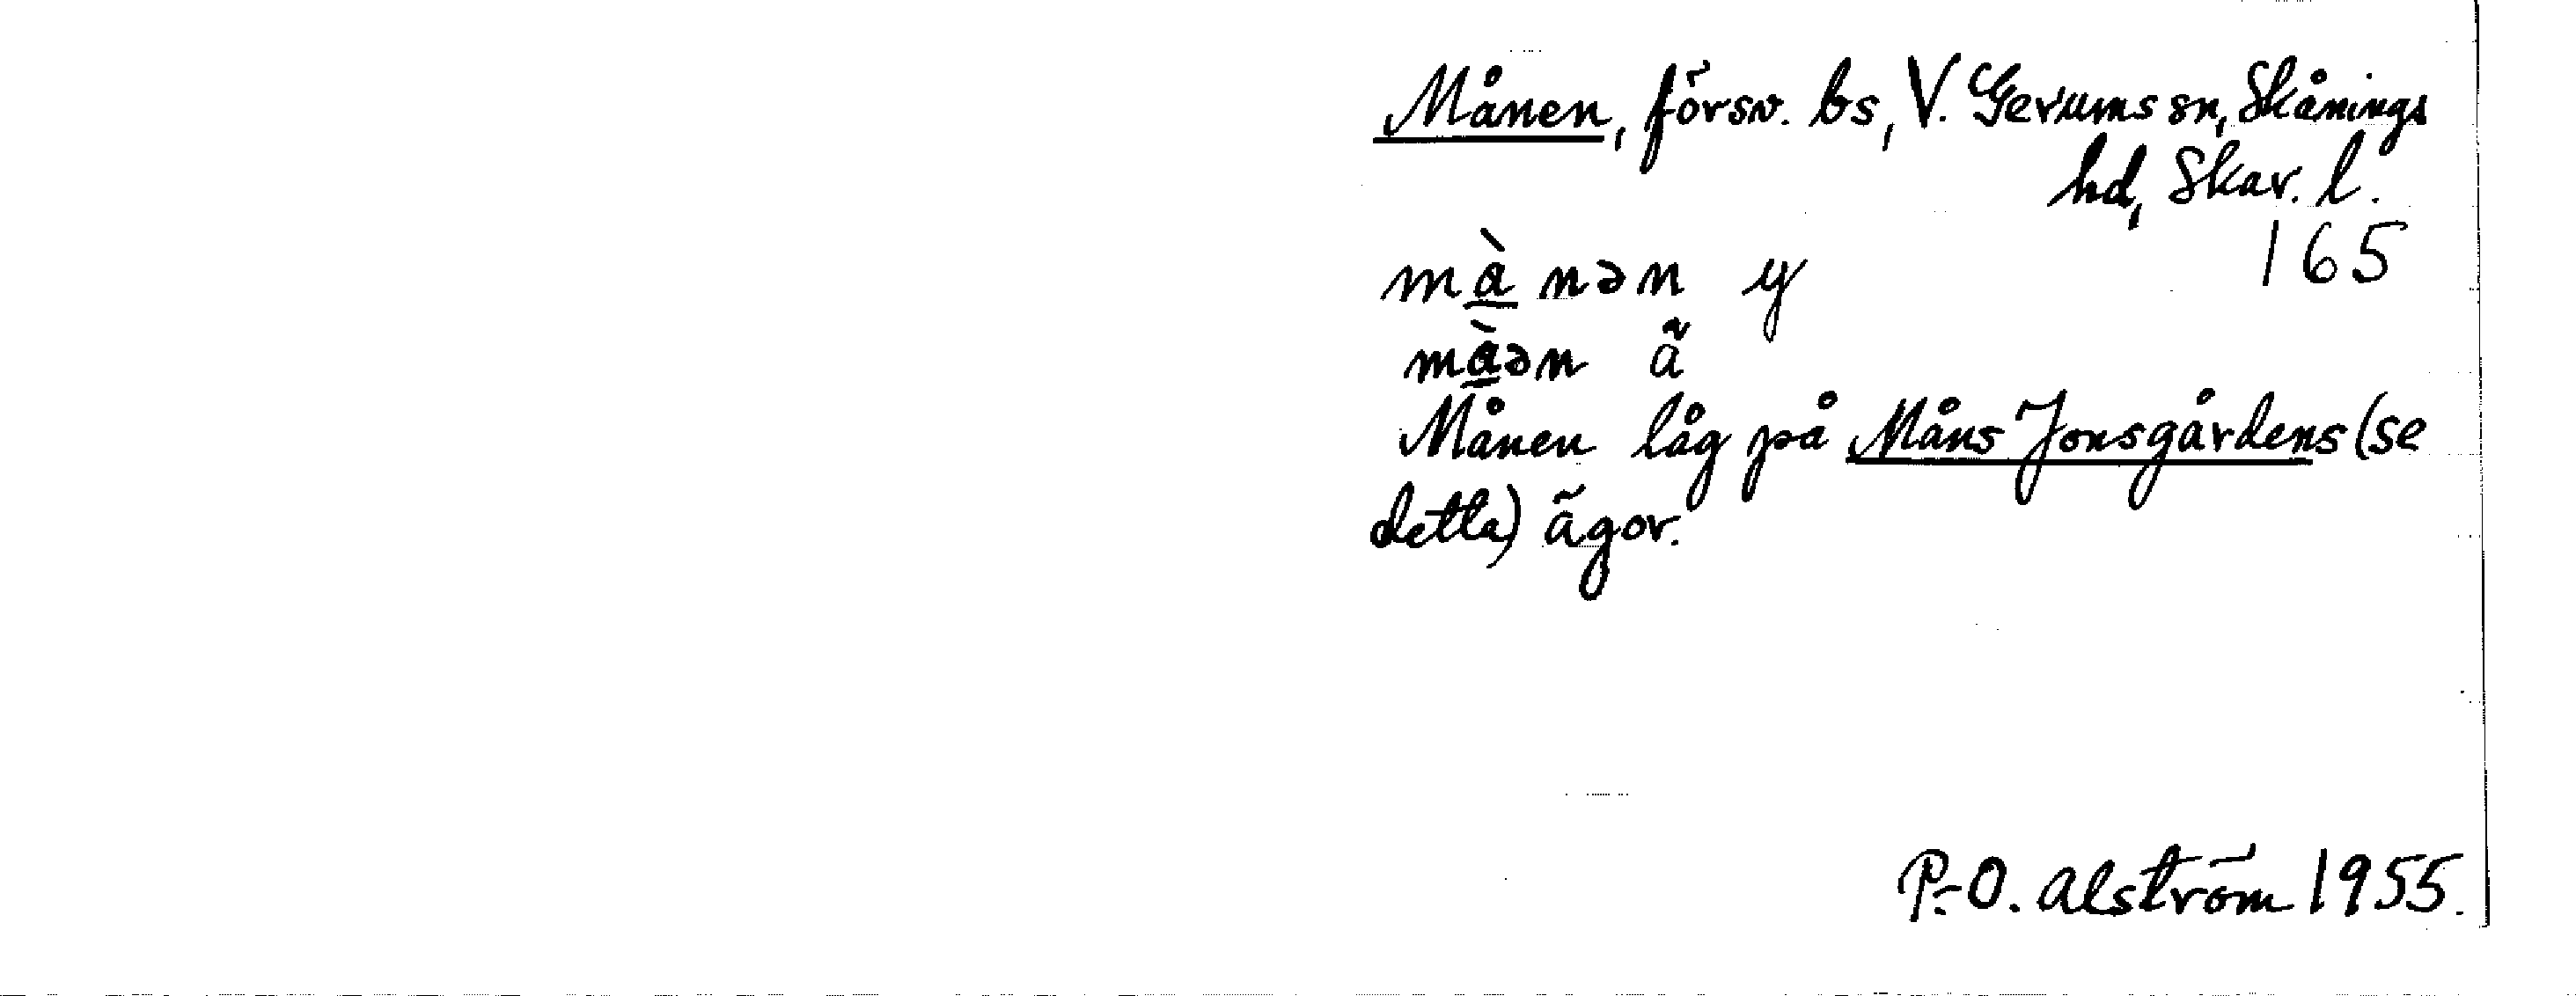 Månen, försv. bs, V. Gerums sn, Skånings
hd, Skar. l.
165
mà̱nən y
mà̱ən ä
Månen låg på Måns Jonsgårdens (se
detta) ägor.
P.-O. Alström 1955.